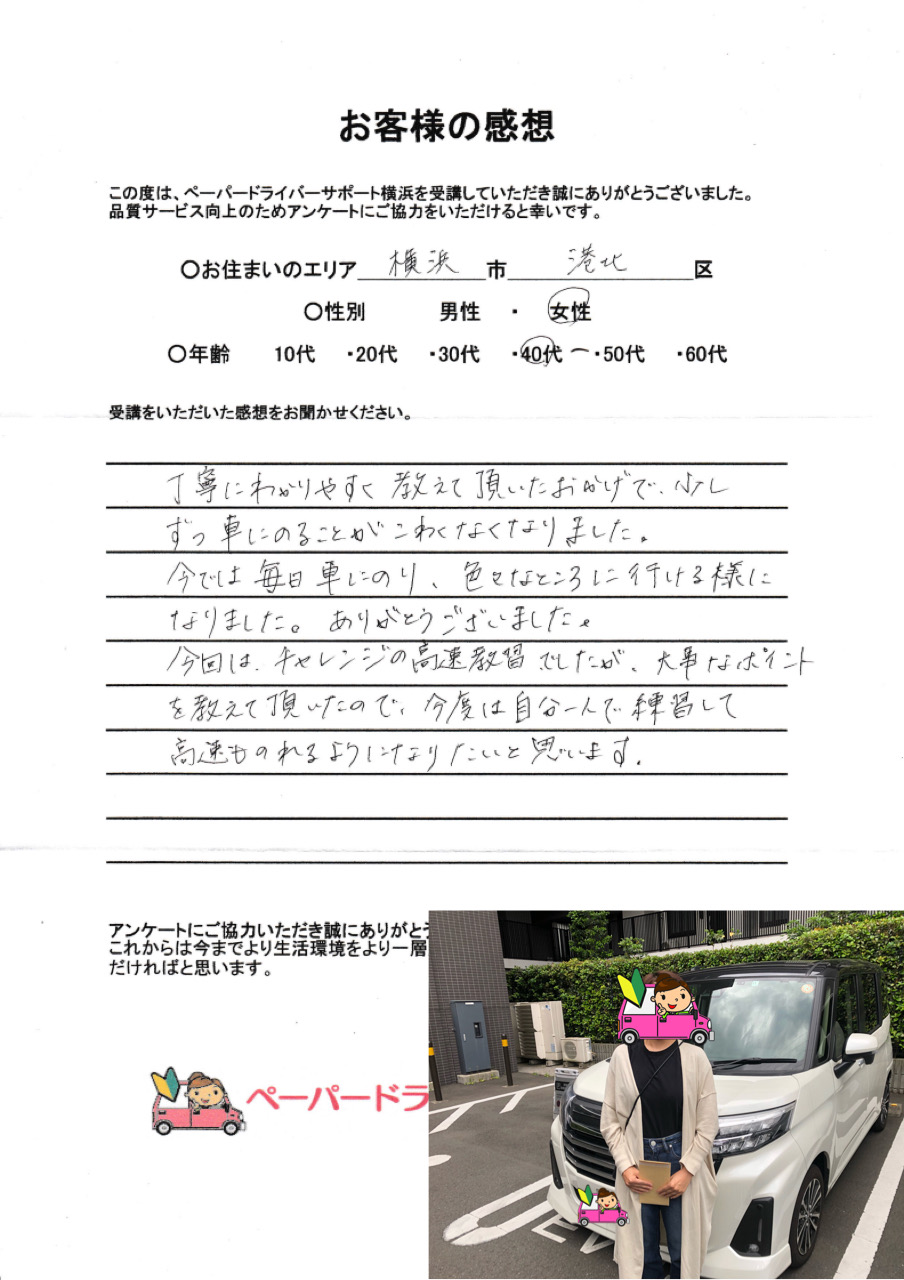 お客様の感想
この度は、ペーパードライバーサポート横浜を受講していただき誠にありがとうございました。
品質サービス向上のためアンケートにご協力をいただけると幸いです。
〇お住まいのエリア 横浜 市 港北 区
〇性別 男性 ・ 女性
〇年齢 10代 ・20代 ・30代 ・40代 ー・50代 ・60代
受講をいただいた感想をお聞かせください。
丁寧にわかりやすく教えて頂いたおかげで、少し
ずつ車にのることがこわくなくなりました。
今では毎日車にのり、色々なところに行ける様に
なりました。ありがとうございました。
今回は、チャレンジの高速教習でしたが、大事なポイント
を教えて頂いたので、今度は自分一人で練習して
高速ものれるようになりたいと思います。
アンケートにご協力いただき誠にありがとう
これからは今までより生活環境をより一層
だければと思います。
ペーパードラ